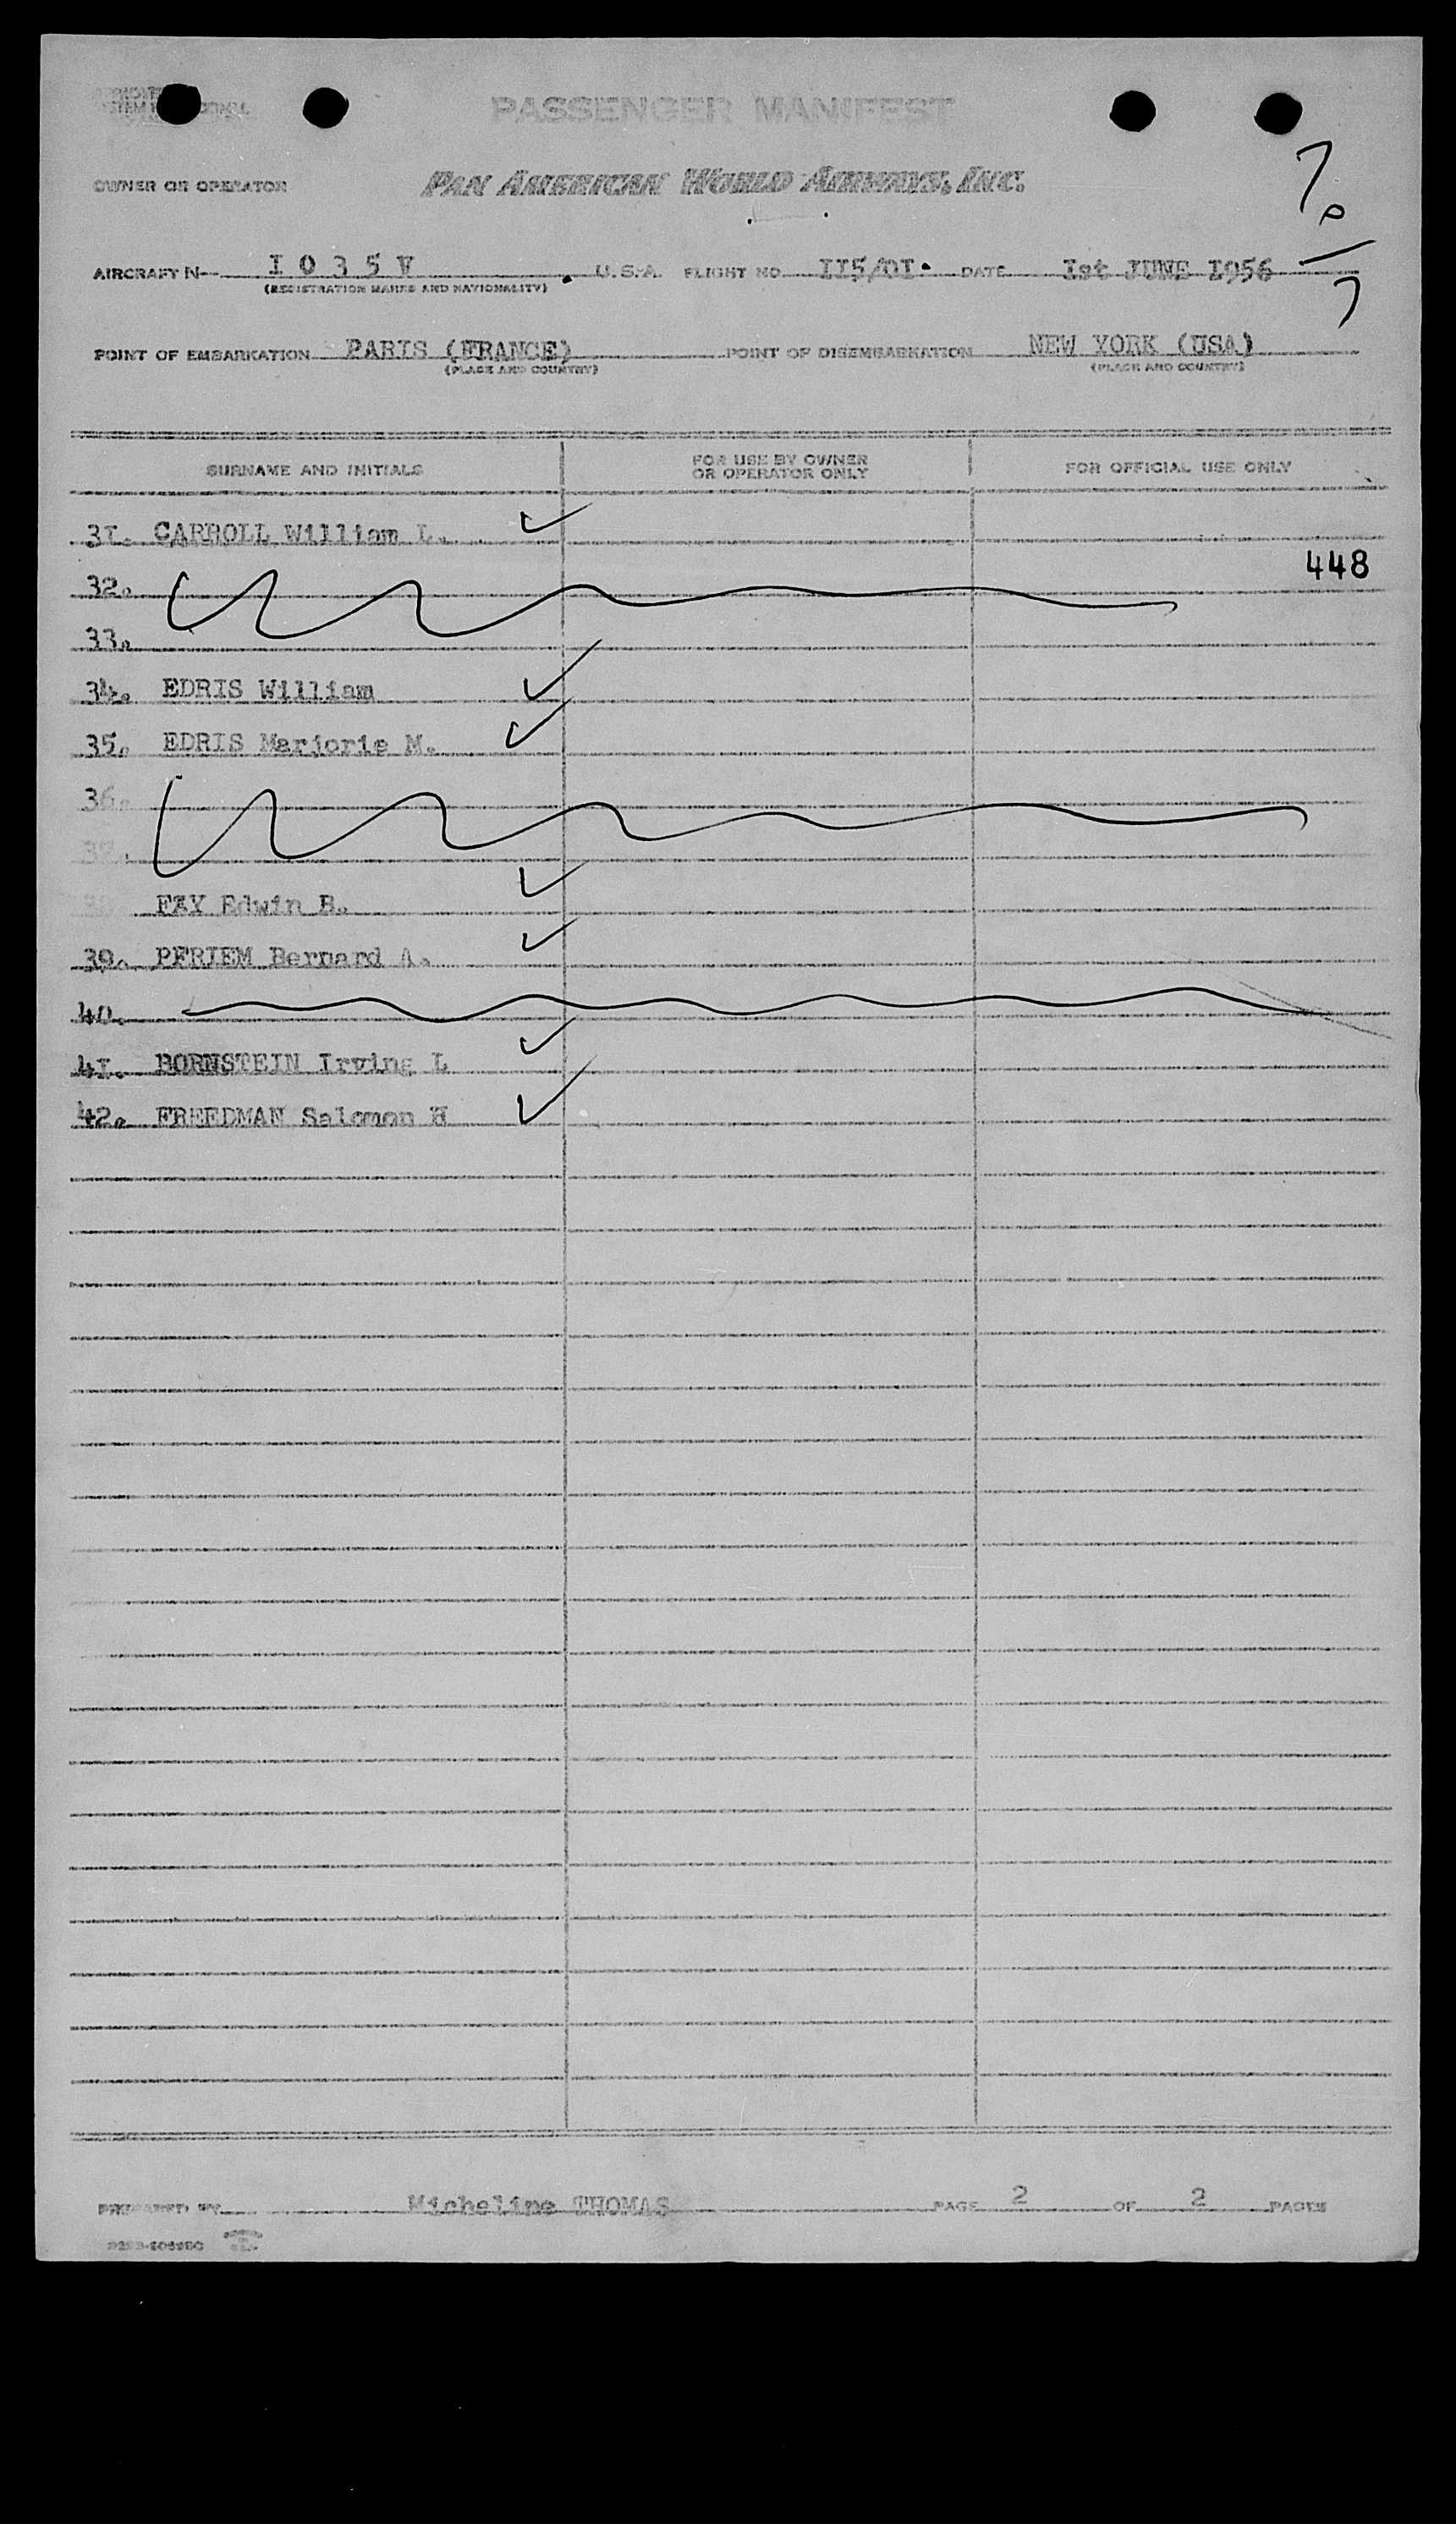 PASSENGER MANIFEST
OWNER OR OPERATOR PAN AMERICAN WORLD AIRWAYS, INC.
AIRCRAFT N- I 0 3 5 V U.S.A. FLIGHT NO. II5/01 DATE Ist JUNE 1956
(REGISTRATION MARKS AND NATIONALITY)
POINT OF EMBARKATION PARIS (FRANCE) POINT OF DISEMBARKATION NEW YORK (USA)
(PLACE AND COUNTRY) (PLACE AND COUNTRY)
SURNAME AND INITIALS FOR USE BY OWNER OR OPERATOR ONLY FOR OFFICIAL USE ONLY
3I. CARROLL William L.
448
32.
33.
34. EDRIS William
35. EDRIS Marjorie M.
36.
37.
38. FAY Edwin B.
39. PFRIEM Bernard A.
40.
4I. BORNSTEIN Irving L
42. FREEDMAN Salomon H
PREPARED BY Micheline THOMAS PAGE 2 OF 2 PAGES